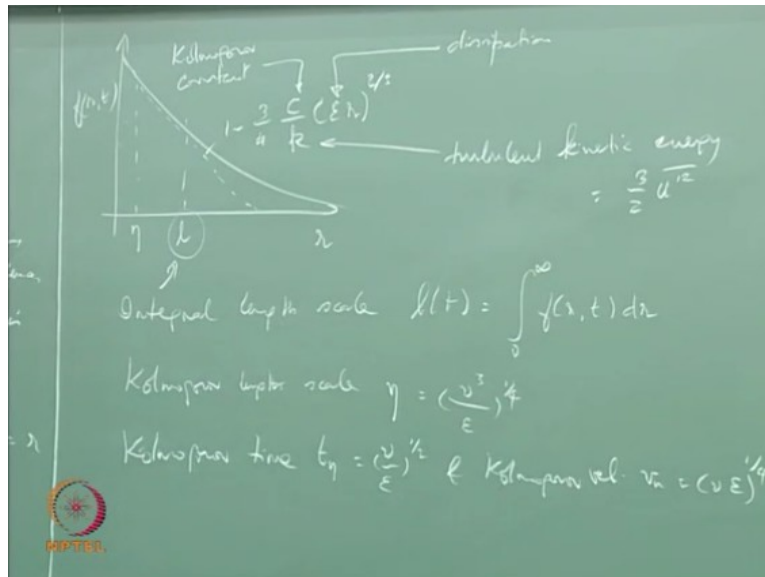 Kolmogorov constant
dissipation
f(r,t)
1 - 3/4 C/k (εr)^2/3
turbulent kinetic energy
= 3/2 u'^2
η l r
Integral length scale l(t) = ∫_0^∞ f(r,t) dr
Kolmogorov length scale η = (ν^3/ε)^1/4
Kolmogorov time t_η = (ν/ε)^1/2 & Kolmogorov vel. v_η = (νε)^1/4
= r
NPTEL